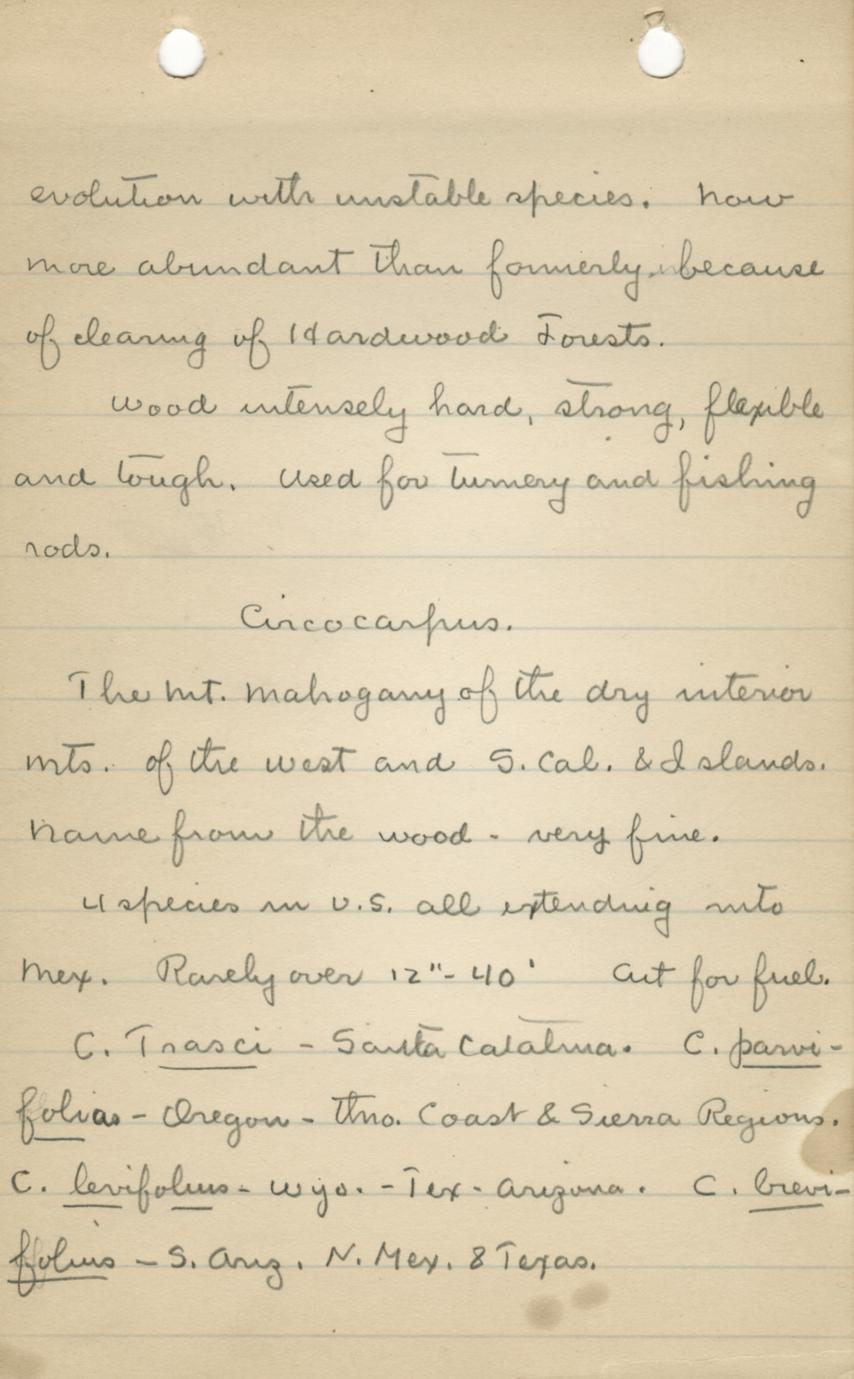 evolution with unstable species. Now
more abundant than formerly because
of clearing of Hardwood Forests.
Wood intensely hard, strong, flexible
and tough. Used for turnery and fishing
rods.
Circocarpus.
The Mt. Mahogany of the dry interior
mts. of the west and S. Cal. & Islands.
Name from the wood - very fine.
4 species in U.S. all extending into
Mex. Rarely over 12"- 40' Cut for fuel.
C. Trasci - Santa Catalina. C. parvi-
folias - Oregon - thro. Coast & Sierra Regions.
C. levifolius - Wyo. - Tex - Arizona. C. brevi-
folius - S. Ariz. N. Mex. & Texas.